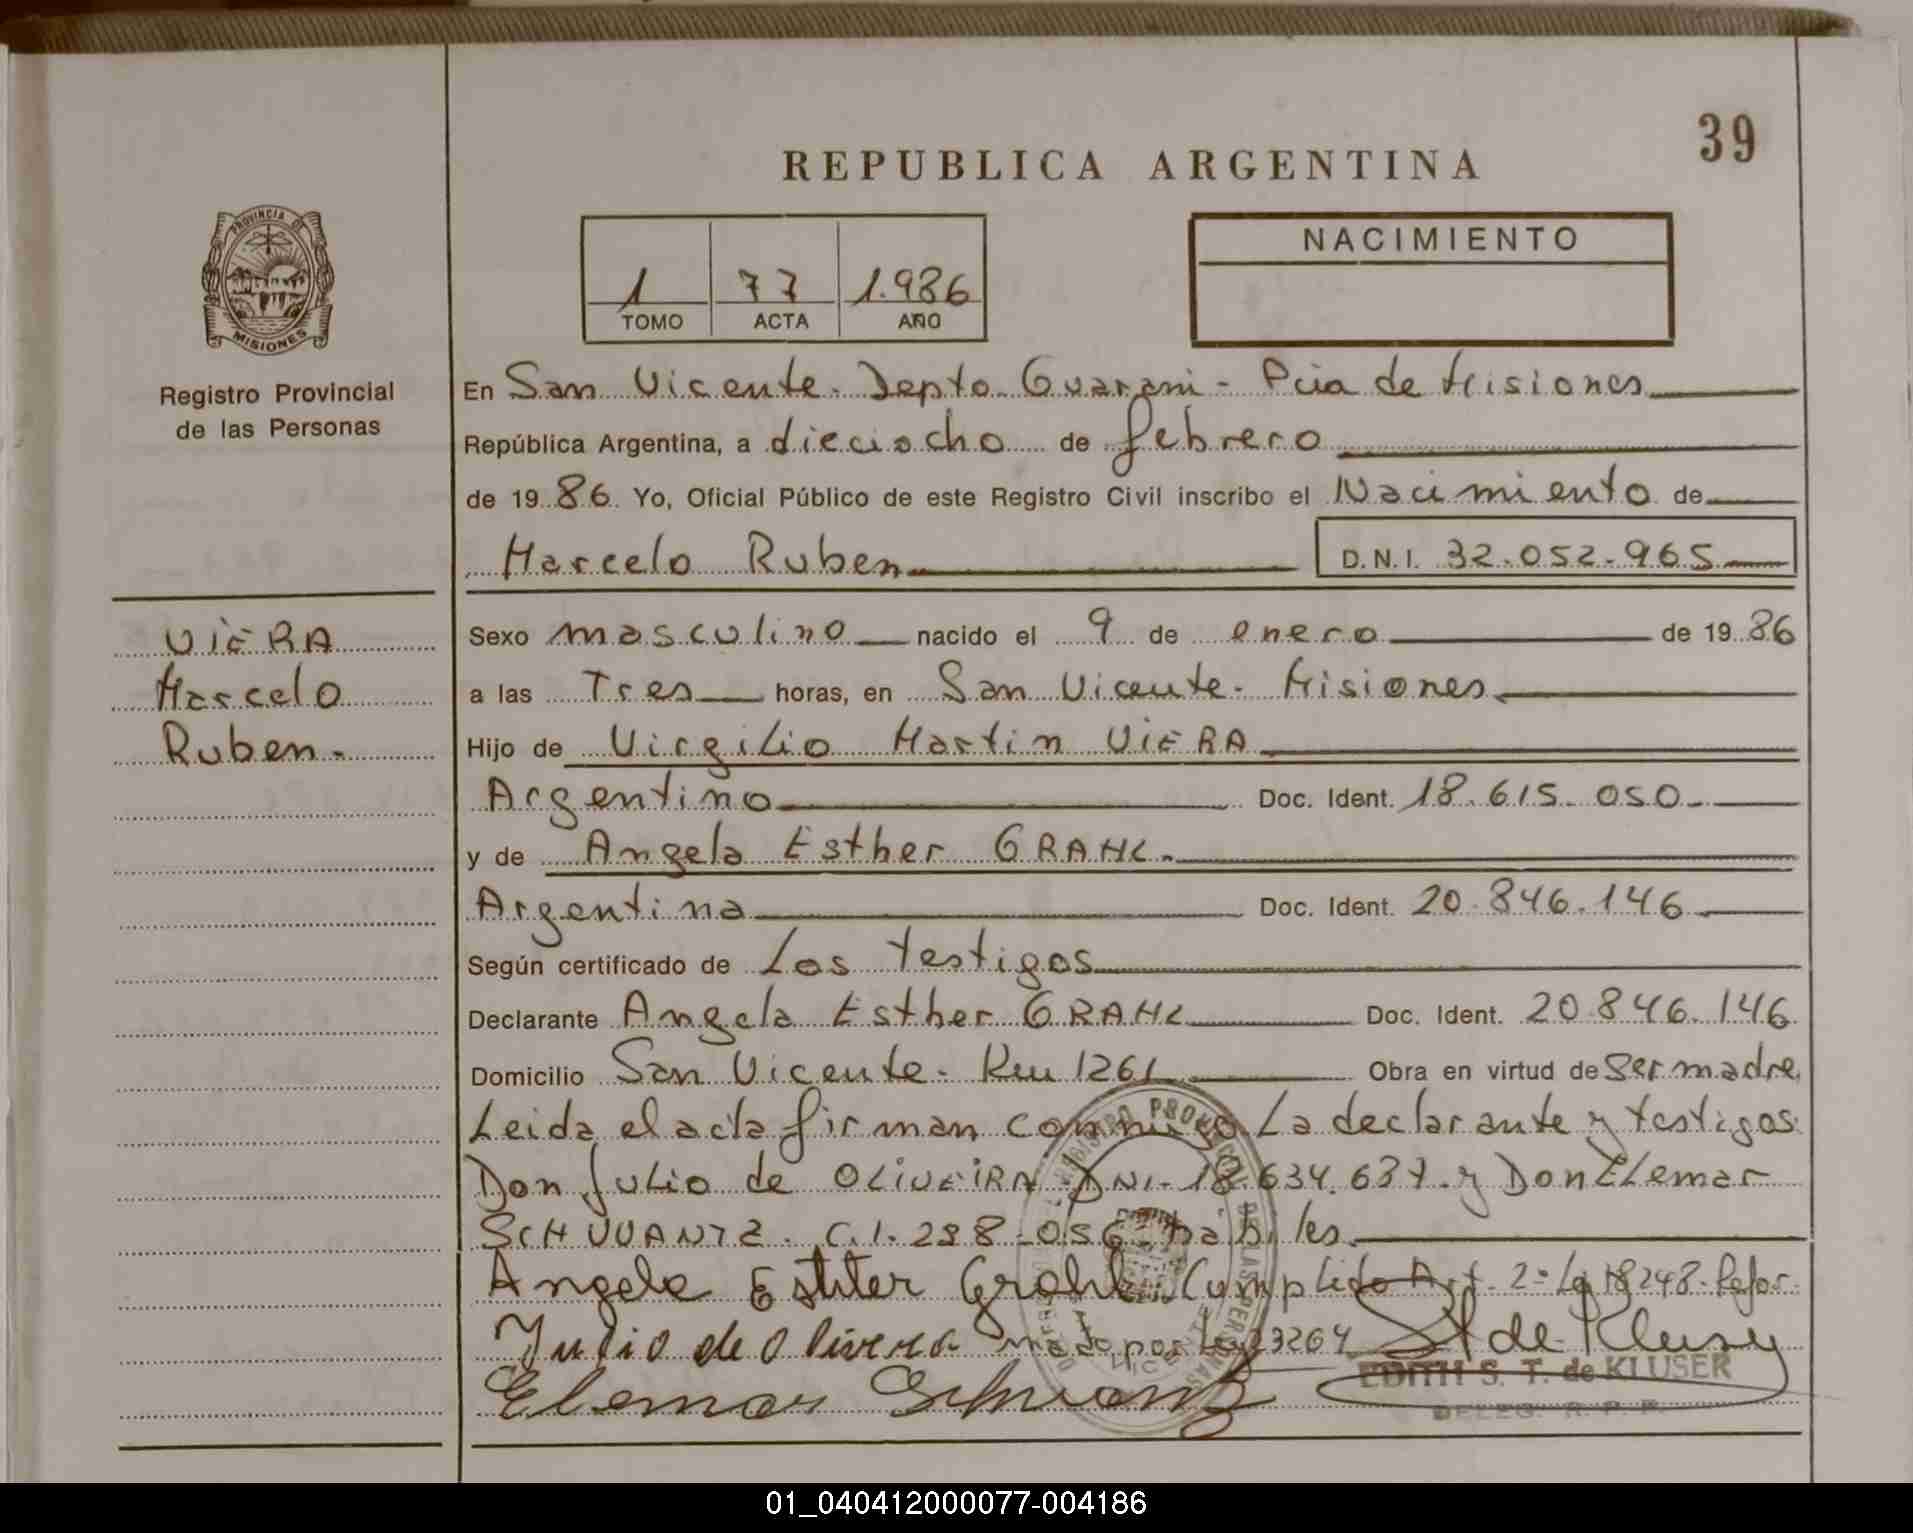 39
REPUBLICA ARGENTINA
PROVINCIA DE
MISIONES
Registro Provincial
de las Personas
1 77 1.986
TOMO ACTA AÑO
NACIMIENTO
En San Vicente. Depto Guarani - Pcia de Misiones
República Argentina, a dieciocho de febrero
de 1986 Yo, Oficial Público de este Registro Civil inscribo el Nacimiento de
Marcelo Ruben D.N.I. 32.052.965
VIERA
Marcelo
Ruben.-
Sexo masculino nacido el 9 de enero de 1986
a las Tres horas, en San Vicente - Misiones
Hijo de Virgilio Martin VIERA
Argentino Doc. Ident. 18.615.050
y de Angela Esther GRAHL
Argentina Doc. Ident. 20.846.146
Según certificado de Los testigos
Declarante Angela Esther GRAHL Doc. Ident. 20.846.146
Domicilio San Vicente - Km 1261 Obra en virtud de ser madre
Leida el acta firman conmigo La declarante y testigos
Don Julio de OLIVEIRA DNI-18.634.637. y Don Elemar
SCHVVANTZ. C.I. 298.056 habiles
Angela Esther Grahl Cumplido Art. 2º Ley 18248. Refor
Julio de olivera mado por Ley 23264 St de Kluser
EDITH S. T. de KLUSER
Elemar Schwantz
DELEG. R. P. P.
01_040412000077-004186